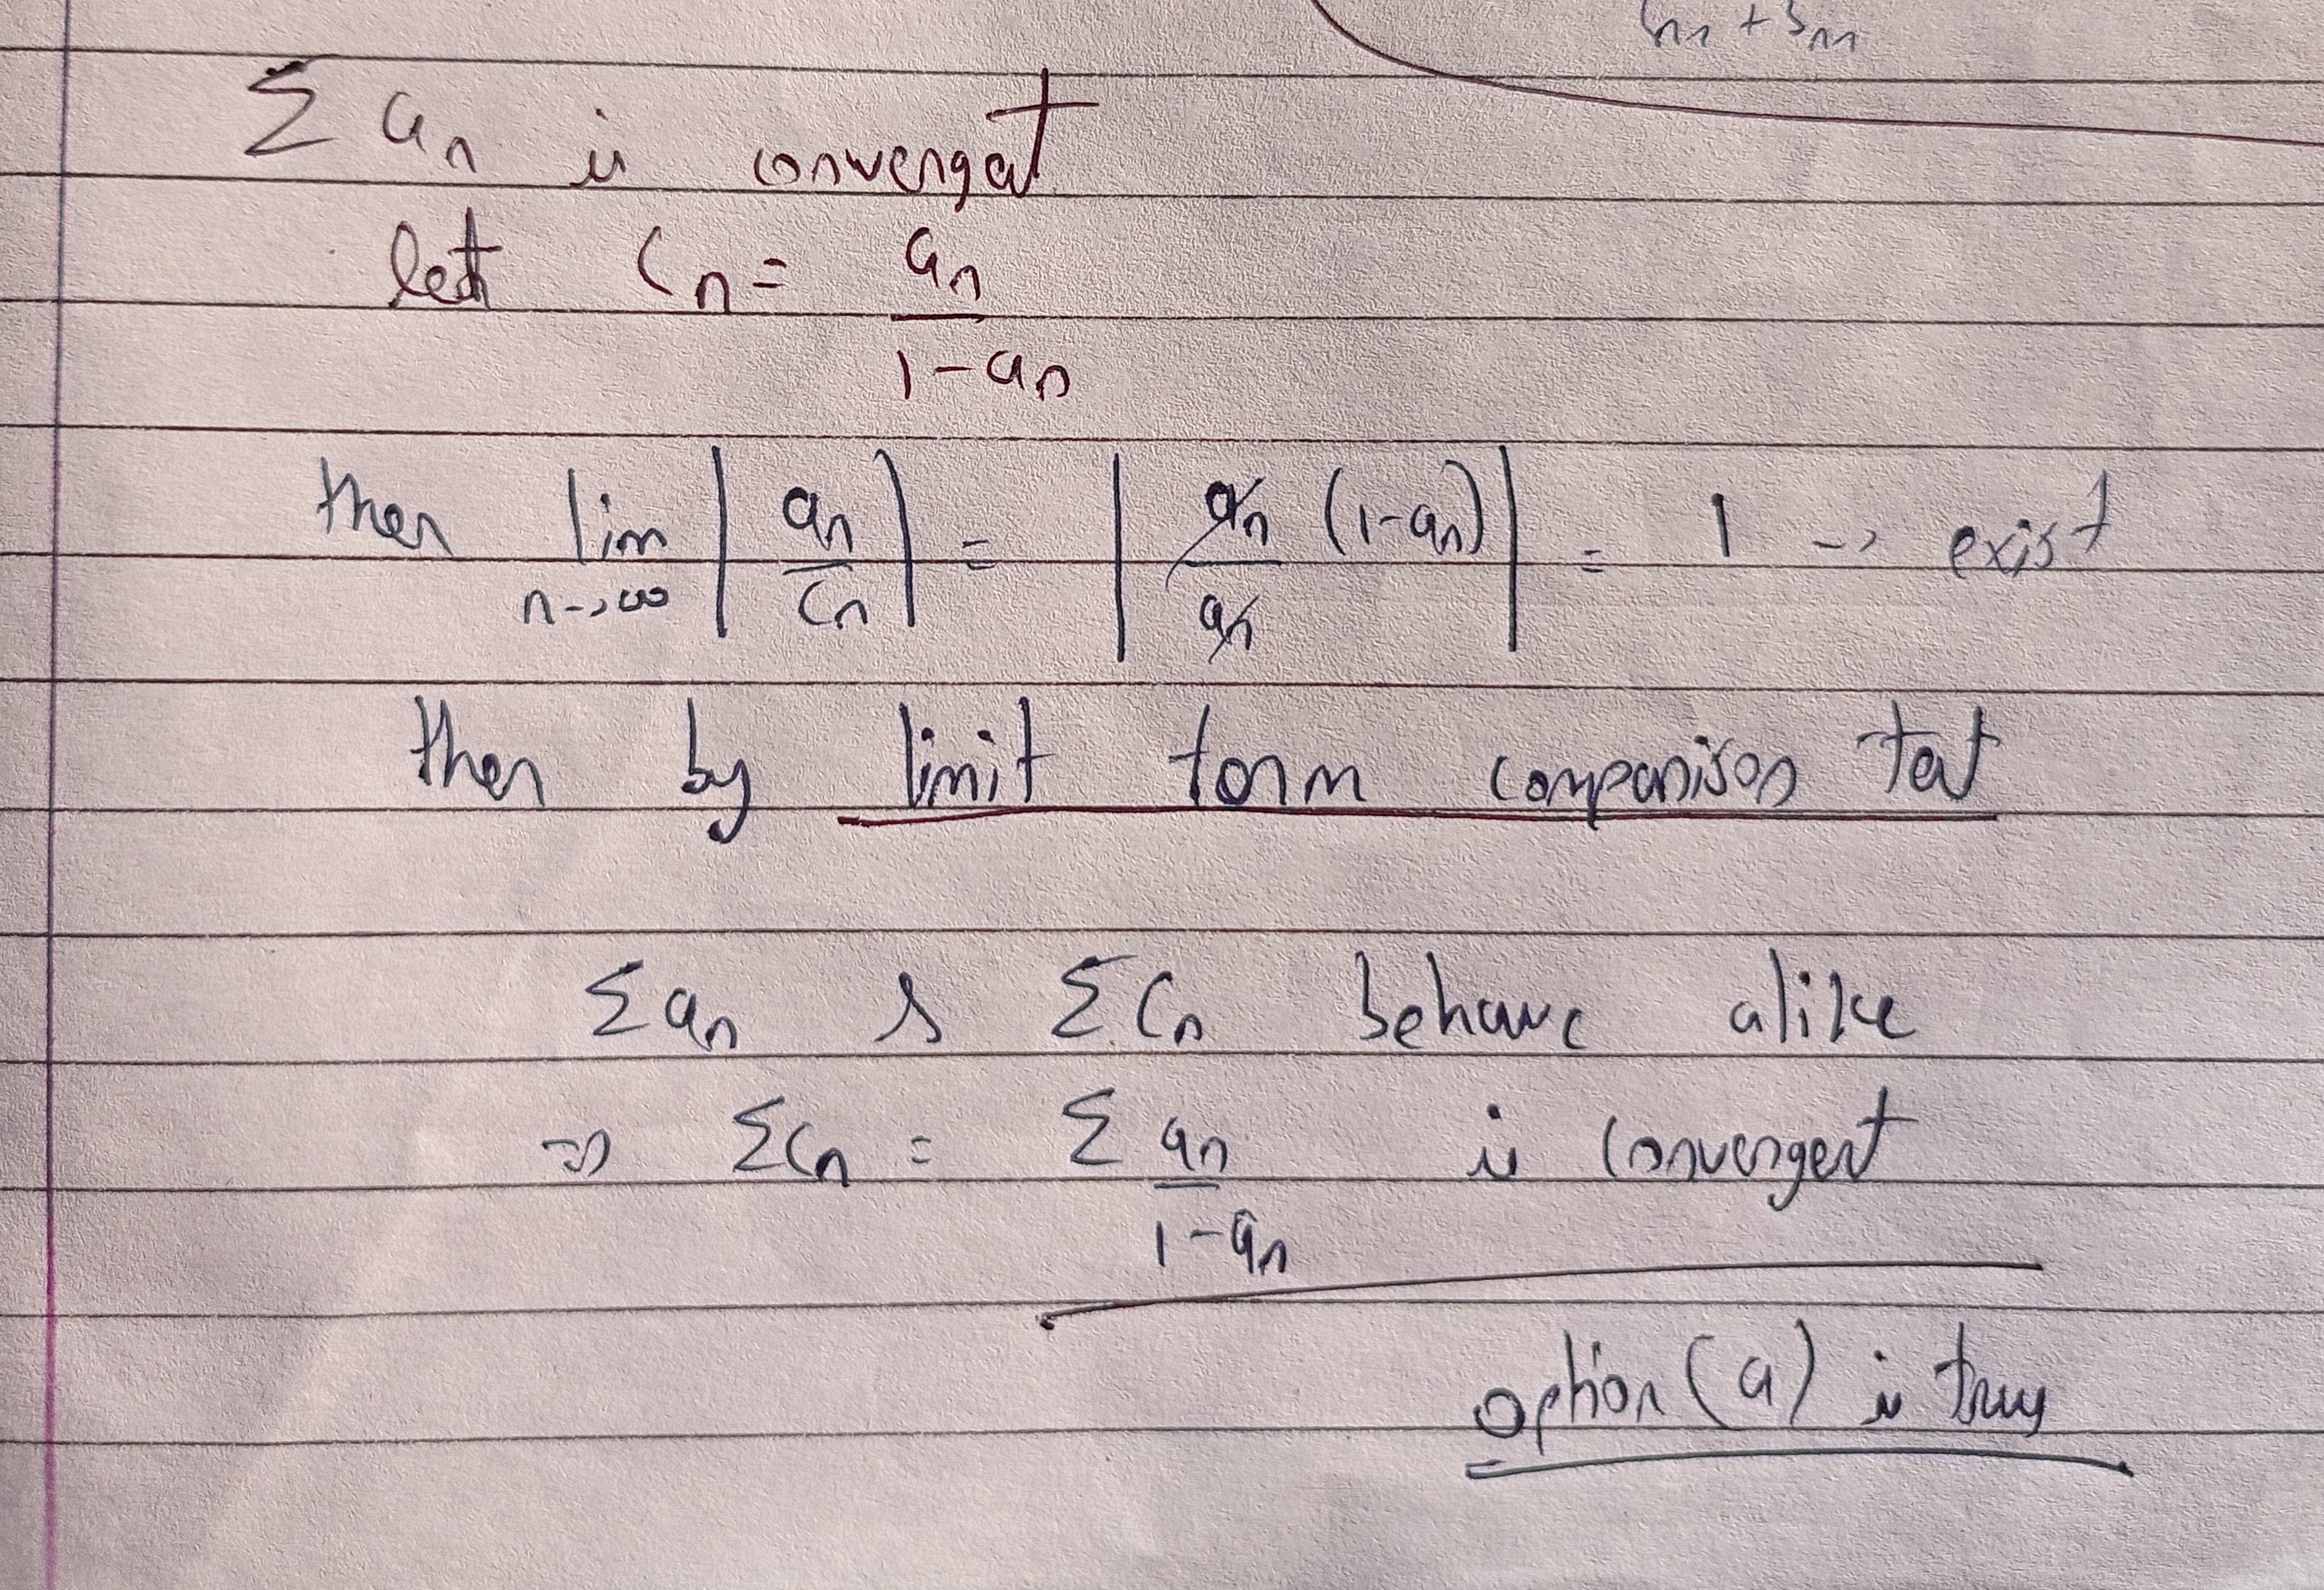 Σ aₙ is convergat
let Cₙ = aₙ / 1-aₙ
then lim n→∞ | aₙ / Cₙ | = | aₙ (1-aₙ) / aₙ | = 1 → exist
then by limit torm comparison tet
Σaₙ & ΣCₙ behave alike
⇒ ΣCₙ = Σ aₙ / 1-aₙ is convergent
option (a) is true